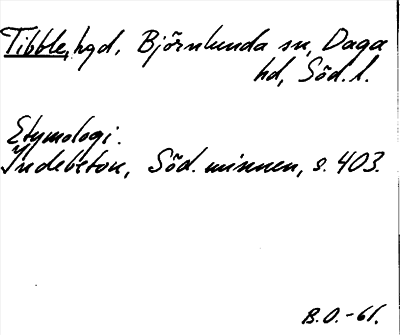 Tibble, hgd, Björnlunda sn, Daga
hd, Söd. l.
Etymologi.
Indebetou, Söd. minnen, s. 403.
B.O.-61.